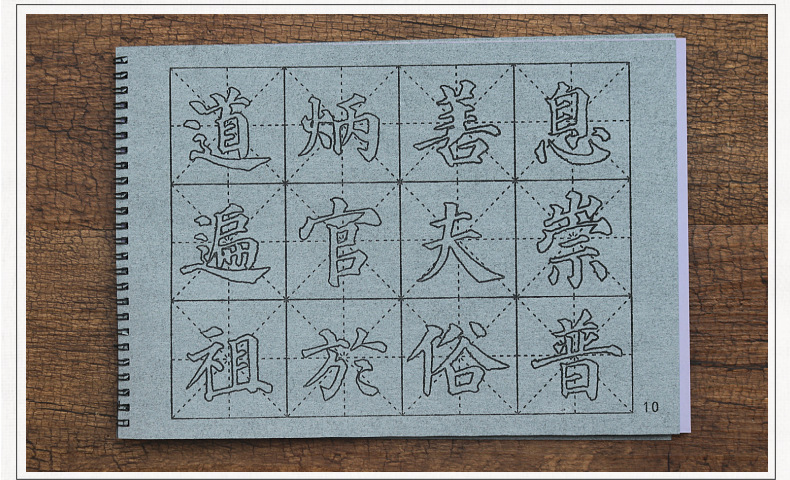 道炳善息
遍官夫崇
祖於俗普
10